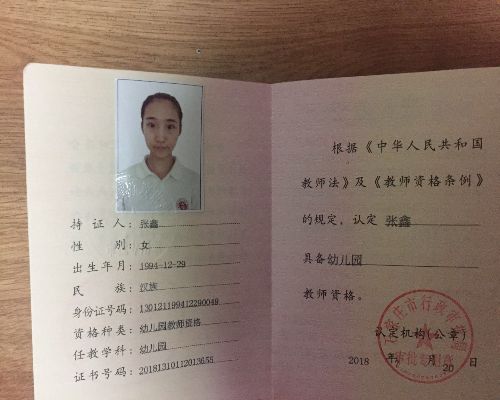 持证人：张鑫
性别：女
出生年月：1994-12-29
民族：汉族
身份证号码：130121199412290049
资格种类：幼儿园教师资格
任教学科：幼儿园
证书号码：20181310112013655
根据《中华人民共和国
教师法》及《教师资格条例》
的规定，认定张鑫
具备幼儿园
教师资格。
认定机构(公章)
2018 年 月 20 日